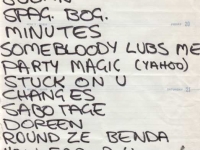 SPAG. BOG.
MINUTES
SOMEBLOODY LUBS ME
PARTY MAGIC (YAHOO)
STUCK ON U
CHANGES
SABOTAGE
DOREEN
ROUND ZE BENDA